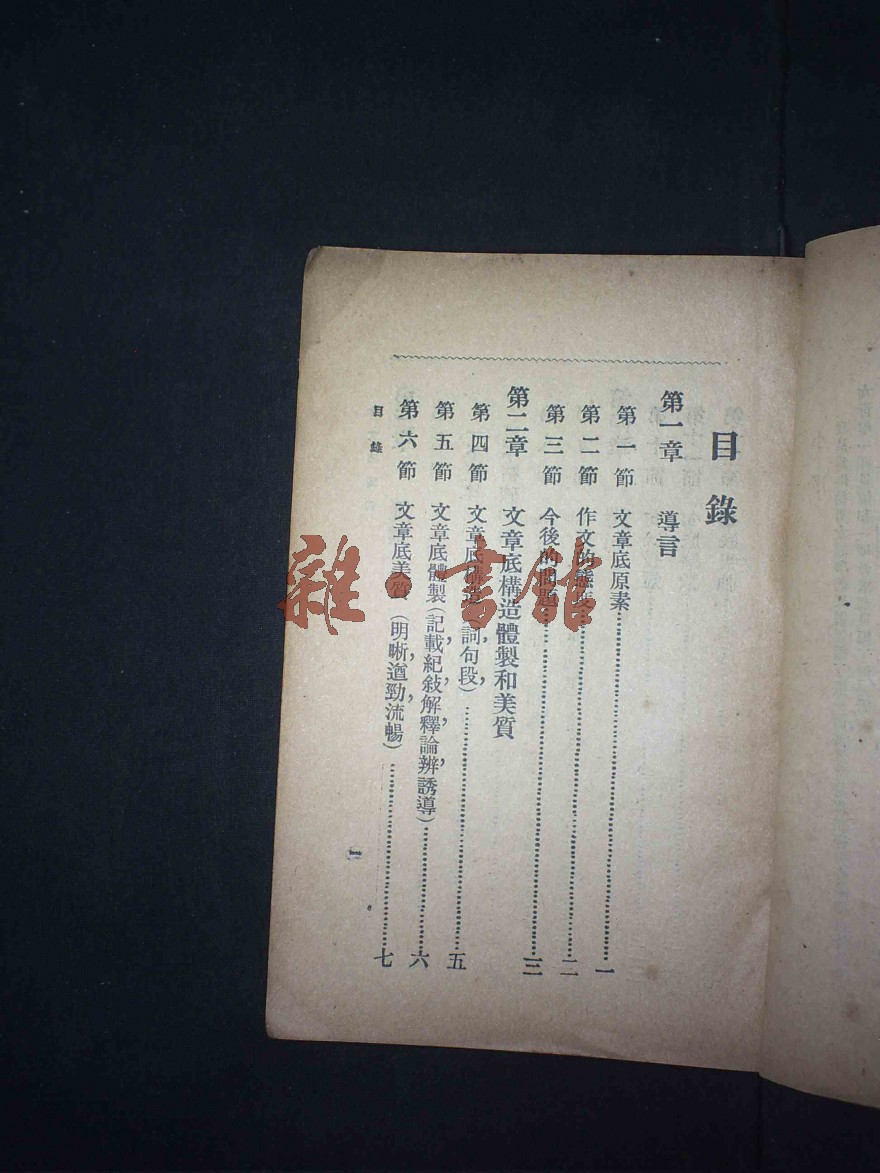 目錄
第一章 導言
第一節 文章底原素……一
第二節 作文的態度……二
第三節 今後的問題……三
第二章 文章底構造體製和美質
第四節 文章底構造（詞，句，段）……五
第五節 文章底體製（記載，紀敍，解釋，論辨，誘導）……六
第六節 文章底美質（明晰，遒勁，流暢）……七
目錄
一
雜·書館